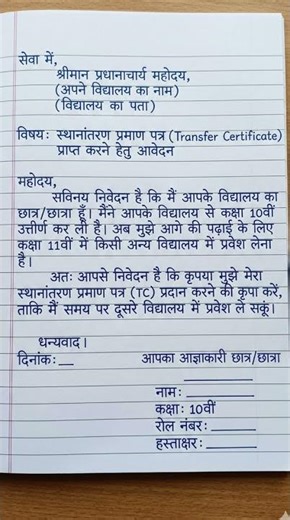 सेवा में,
श्रीमान प्रधानाचार्य महोदय,
(अपने विद्यालय का नाम)
(विद्यालय का पता)
विषय: स्थानांतरण प्रमाण पत्र (Transfer Certificate)
प्राप्त करने हेतु आवेदन
महोदय,
सविनय निवेदन है कि मैं आपके विद्यालय का
छात्र/छात्रा हूँ। मैंने आपके विद्यालय से कक्षा 10वीं
उत्तीर्ण कर ली है। अब मुझे आगे की पढ़ाई के लिए
कक्षा 11वीं में किसी अन्य विद्यालय में प्रवेश लेना
है।
अतः आपसे निवेदन है कि कृपया मुझे मेरा
स्थानांतरण प्रमाण पत्र (TC) प्रदान करने की कृपा करें,
ताकि मैं समय पर दूसरे विद्यालय में प्रवेश ले सकूं।
धन्यवाद।
दिनांक:__ आपका आज्ञाकारी छात्र/छात्रा
________
नाम: ________
कक्षा: 10वीं
रोल नंबर: ______
हस्ताक्षर: ______